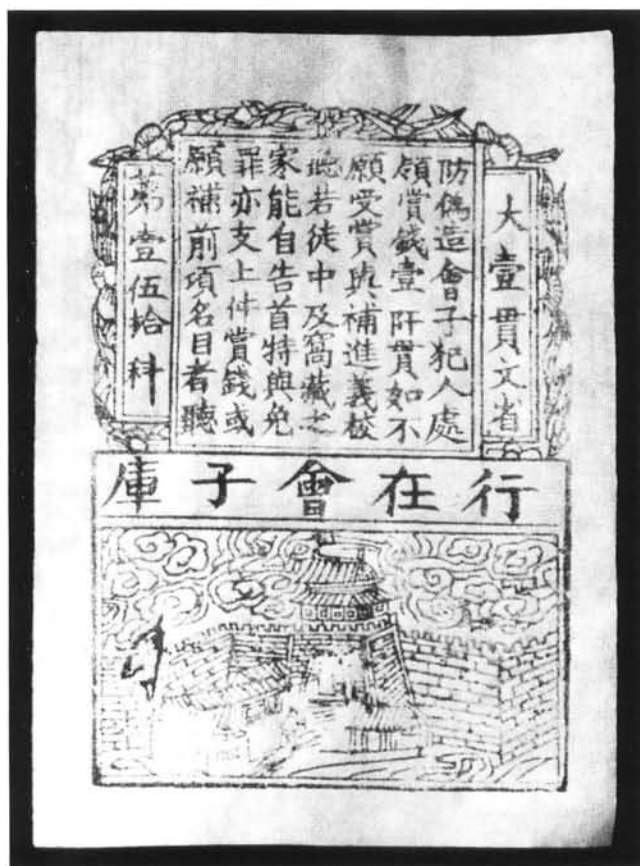 大壹貫文省
防偽造會子犯人處
領賞錢壹阡貫如不
願受賞與補進義校
聴若徒中及窩藏之
家能自告首特與免
罪亦支上件賞錢或
願補前項名目者聽
苐壹伍拾料
行在會子庫